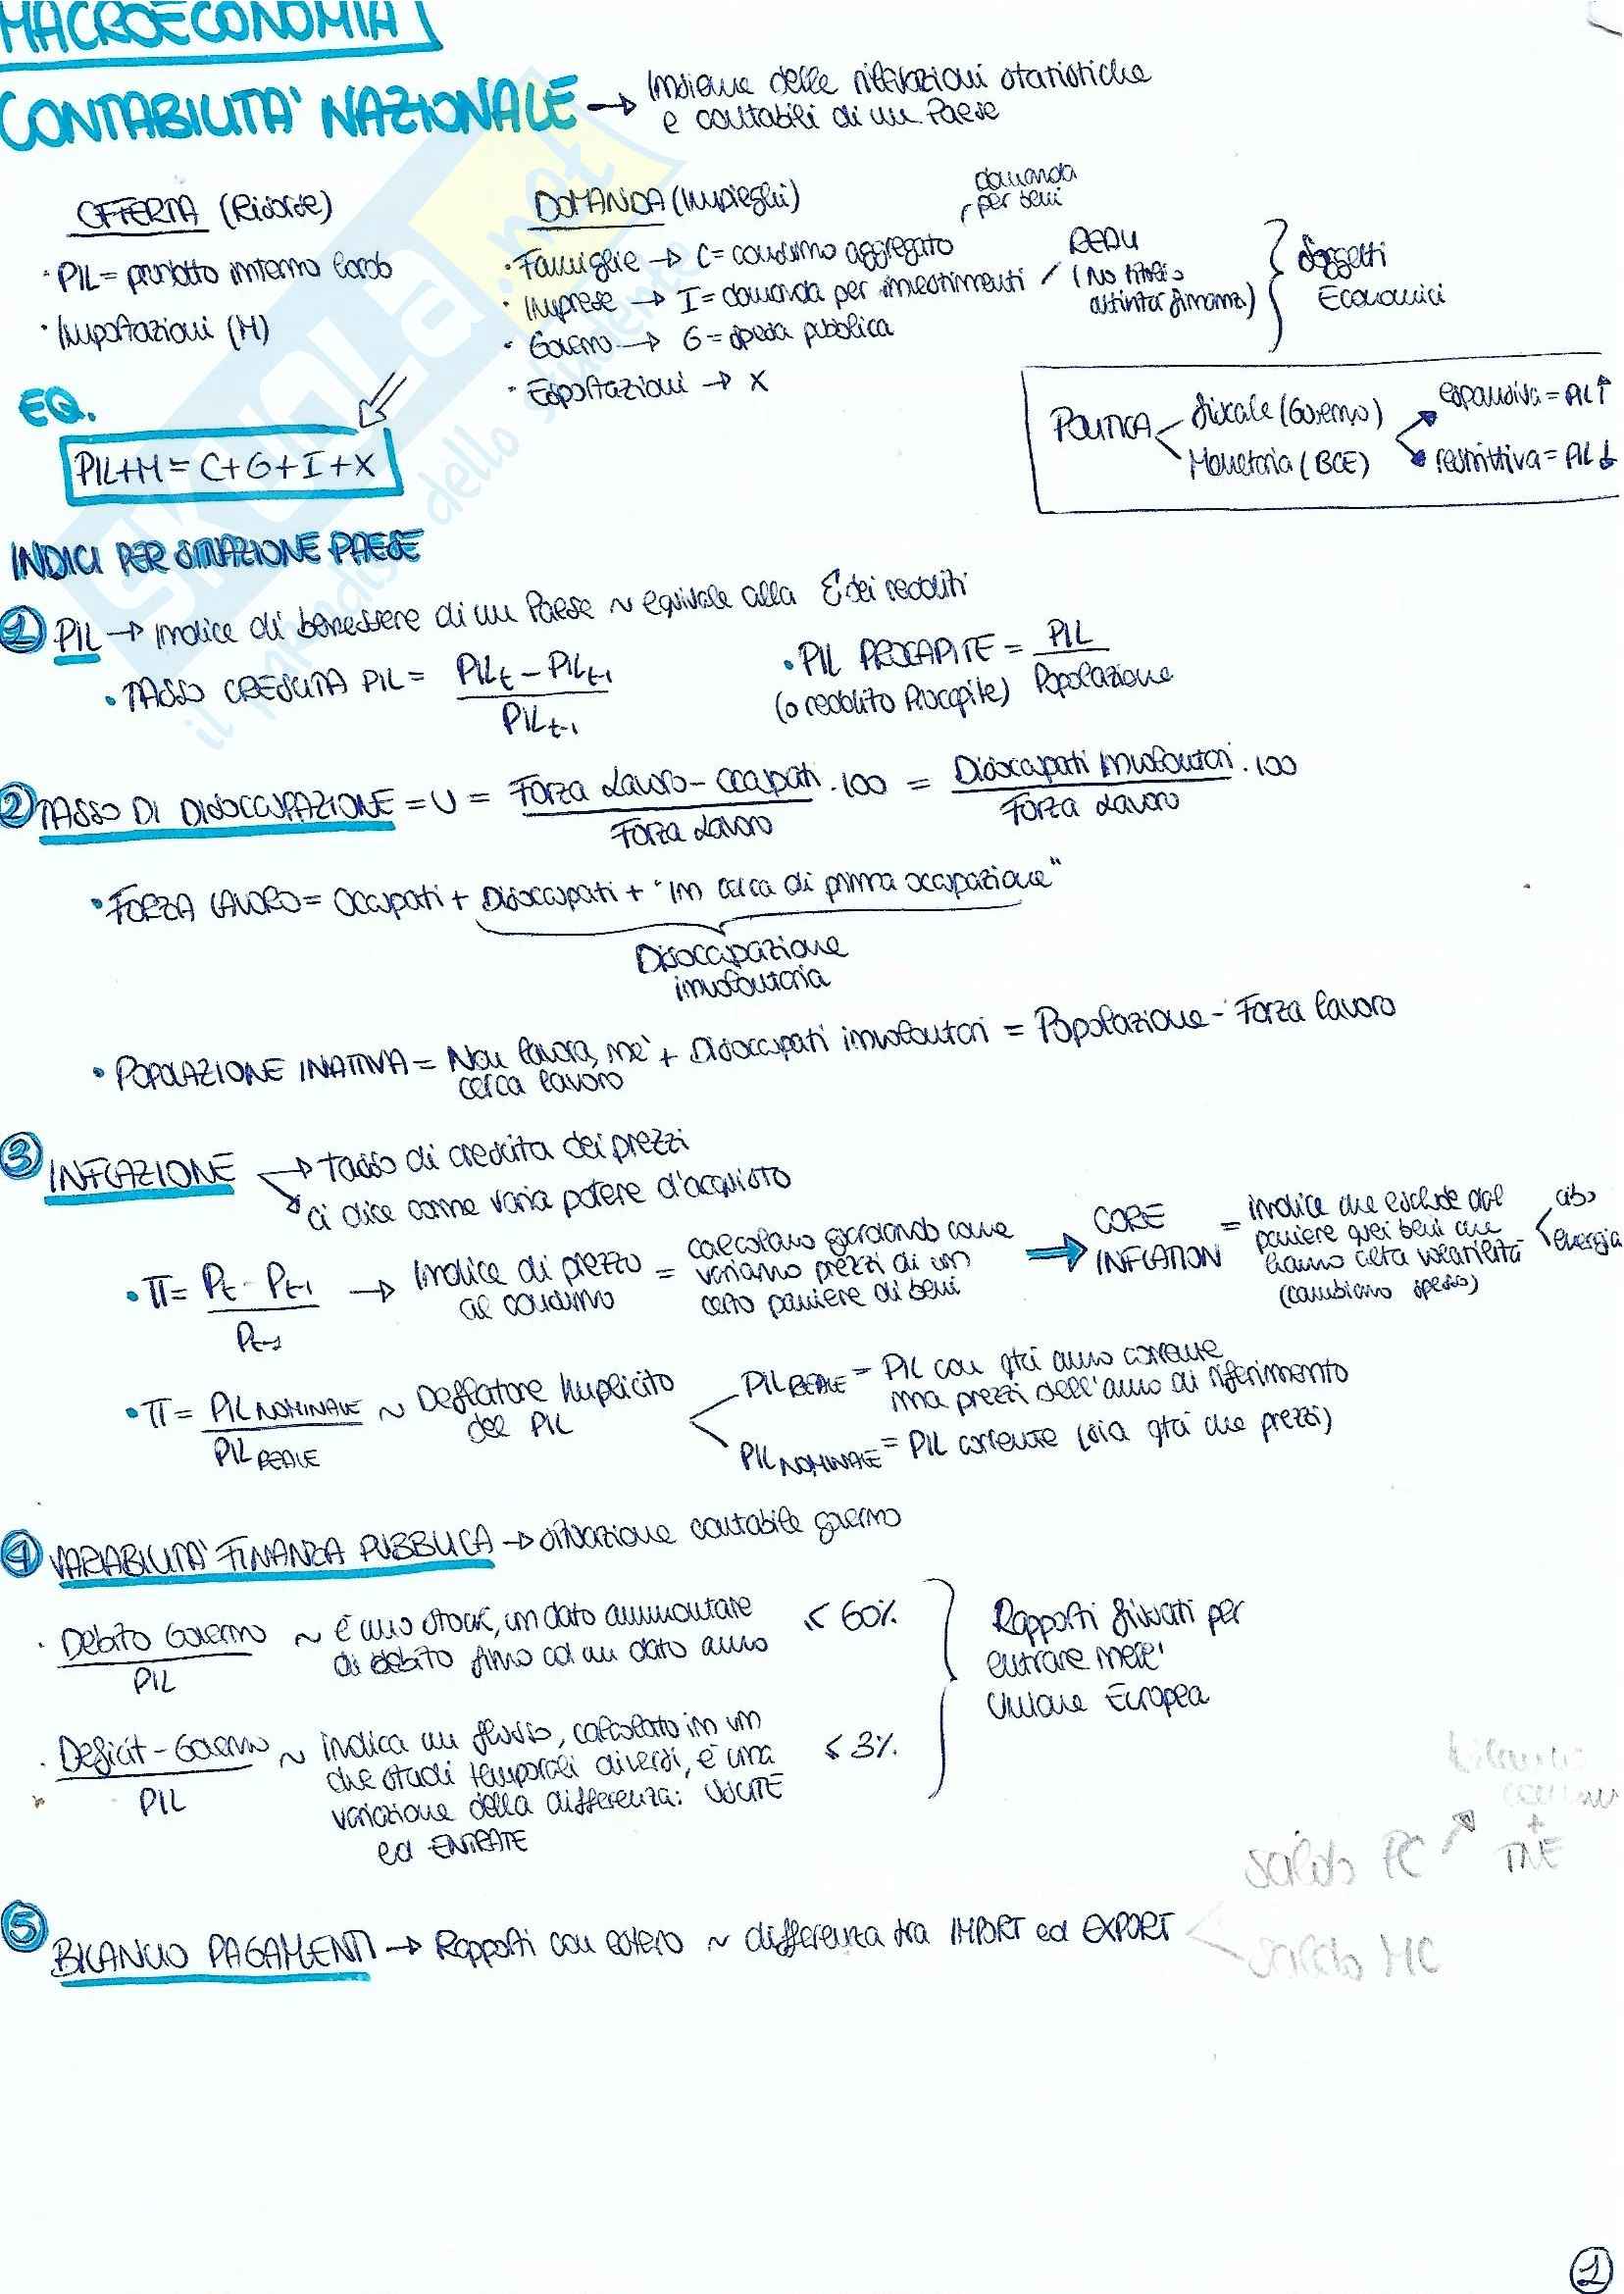 MACROECONOMIA
CONTABILITA' NAZIONALE → Insieme delle rilevazioni statistiche
e contabili di un Paese
OFFERTA (Risorse)
• PIL = prodotto interno lordo
• Importazioni (M)
DOMANDA (Impieghi)
domanda
per beni
• Famiglie → C = consumo aggregato
• Imprese → I = domanda per investimenti / REALI
(No titoli o
attività finanza)
• Governo → G = spesa pubblica
• Esportazioni → X
Soggetti
Economici
EQ.
PIL+M = C+G+I+X
POLITICA
fiscale (Governo)
Monetaria (BCE)
espansiva = PIL ↑
restrittiva = PIL ↓
INDICI PER SITUAZIONE PAESE
1 PIL → indice di benessere di un Paese ~ equivale alla Σ dei redditi
• TASSO CRESCITA PIL = PILt - PILt-1
PILt-1
• PIL PROCAPITE = PIL
(o reddito Procapite) Popolazione
2 TASSO DI DISOCCUPAZIONE = U = Forza Lavoro - Occupati . 100 = Disoccupati involontari . 100
Forza Lavoro Forza Lavoro
• FORZA LAVORO = Occupati + Disoccupati + "in cerca di prima occupazione"
Disoccupazione
involontaria
• POPOLAZIONE INATTIVA = Non lavora, ne' + Disoccupati involontari = Popolazione - Forza lavoro
cerca lavoro
3 INFLAZIONE → tasso di crescita dei prezzi
ci dice come varia potere d'acquisto
• π = Pt - Pt-1 → Indice di prezzo = calcolano guardando come
Pt-1 al consumo variano prezzi di un
certo paniere di beni
CORE
INFLATION
= indice che esclude dal
paniere quei beni che
hanno alta volatilità
(cambiano spesso)
cibo
energia
• π = PIL NOMINALE ~ Deflatore Implicito
PIL REALE del PIL
PIL REALE = PIL con qtà anno corrente
ma prezzi dell'anno di riferimento
PIL NOMINALE = PIL corrente (sia qtà che prezzi)
4 VARIABILITA' FINANZA PUBBLICA → situazione contabile governo
• Debito Governo ~ è uno stock, un dato ammontare ≤ 60%
PIL di debito fino ad un dato anno
Rapporti fissati per
entrare nell'
Unione Europea
• Deficit-Governo ~ indica un flusso, calcolato in un ≤ 3%
PIL temporali diversi, è una
variazione della differenza: USCITE
ed ENTRATE
5 BILANCIO PAGAMENTI → Rapporti con estero ~ differenza tra IMPORT ed EXPORT
saldo PC
+
TNE
saldo MC
1
SKUOLA.net
il paradiso dello studente